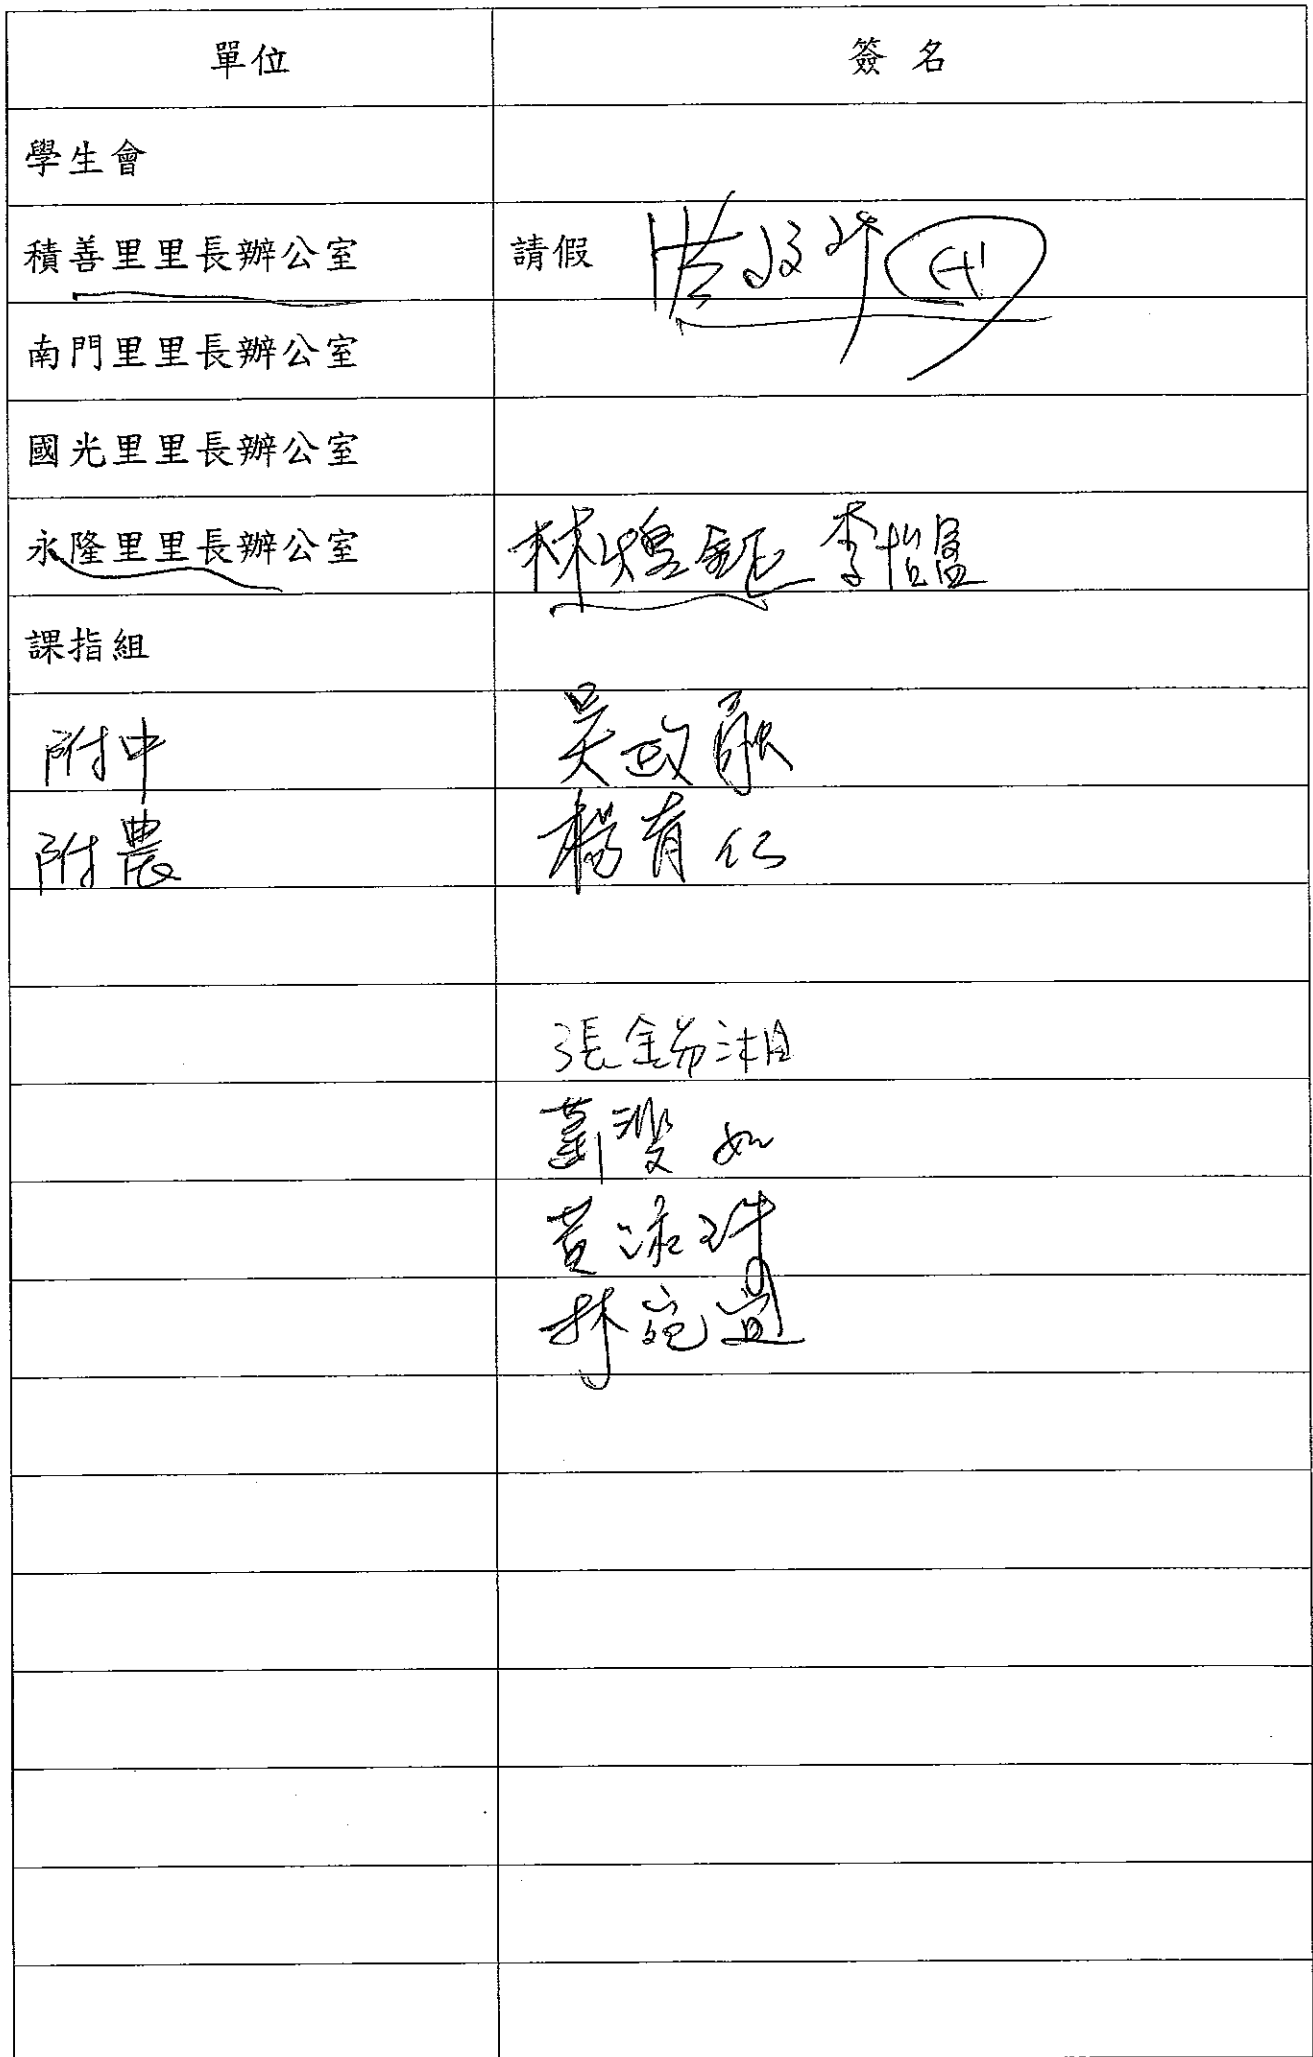 單位 簽名
學生會
積善里里長辦公室 請假
南門里里長辦公室
國光里里長辦公室
永隆里里長辦公室 林煌鈺 李怡盈
課指組
附中 吳政承
附農 楊育仁
張錫湘
黃淑珠
林宛宜